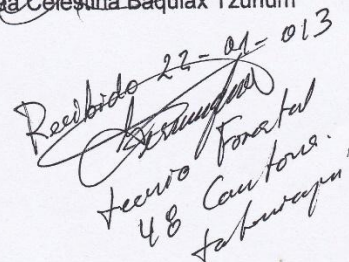 ea Celestina Baquiax Tzunum
Recibido 22-01-013
tecnio Forestal
48 Cantones.